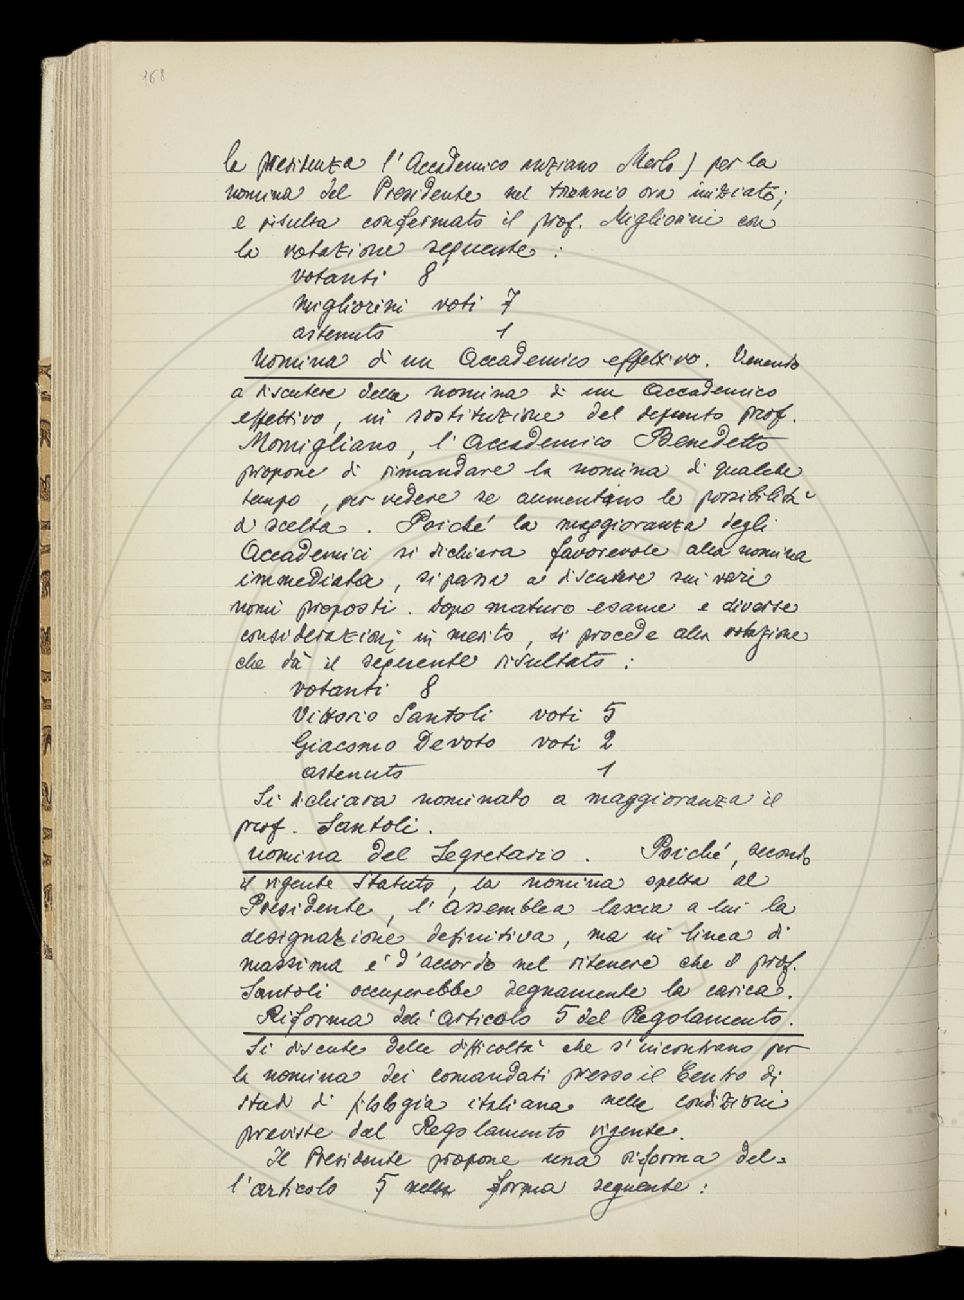 168
la presidenza l'Accademico anziano Merlo) per la
nomina del Presidente nel triennio ora iniziato;
e risulta confermato il prof. Migliorini con
la votazione seguente:
votanti 8
Migliorini voti 7
astenuto 1
Nomina di un Accademico effettivo. Venendo
a discutere della nomina di un Accademico
effettivo, in sostituzione del defunto prof.
Momigliano, l'Accademico Benedetto
propone di rimandare la nomina di qualche
tempo, per vedere se aumentano le possibilità
di scelta. Poiché la maggioranza degli
Accademici si dichiara favorevole alla nomina
immediata, si passa a discutere sui vari
nomi proposti. Dopo maturo esame e diverse
considerazioni in merito, si procede alla votazione
che dà il seguente risultato:
votanti 8
Vittorio Santoli voti 5
Giacomo Devoto voti 2
astenuto 1
Si dichiara nominato a maggioranza il
prof. Santoli.
Nomina del Segretario. Poiché, secondo
il vigente Statuto, la nomina spetta al
Presidente, l'Assemblea lascia a lui la
designazione definitiva, ma in linea di
massima è d'accordo nel ritenere che il prof.
Santoli occuperebbe degnamente la carica.
Riforma dell'articolo 5 del Regolamento.
Si discute delle difficoltà che s'incontrano per
la nomina dei comandati presso il Centro di
studi di filologia italiana nelle condizioni
previste dal Regolamento vigente.
Il Presidente propone una riforma del=
l'articolo 5 nella forma seguente: